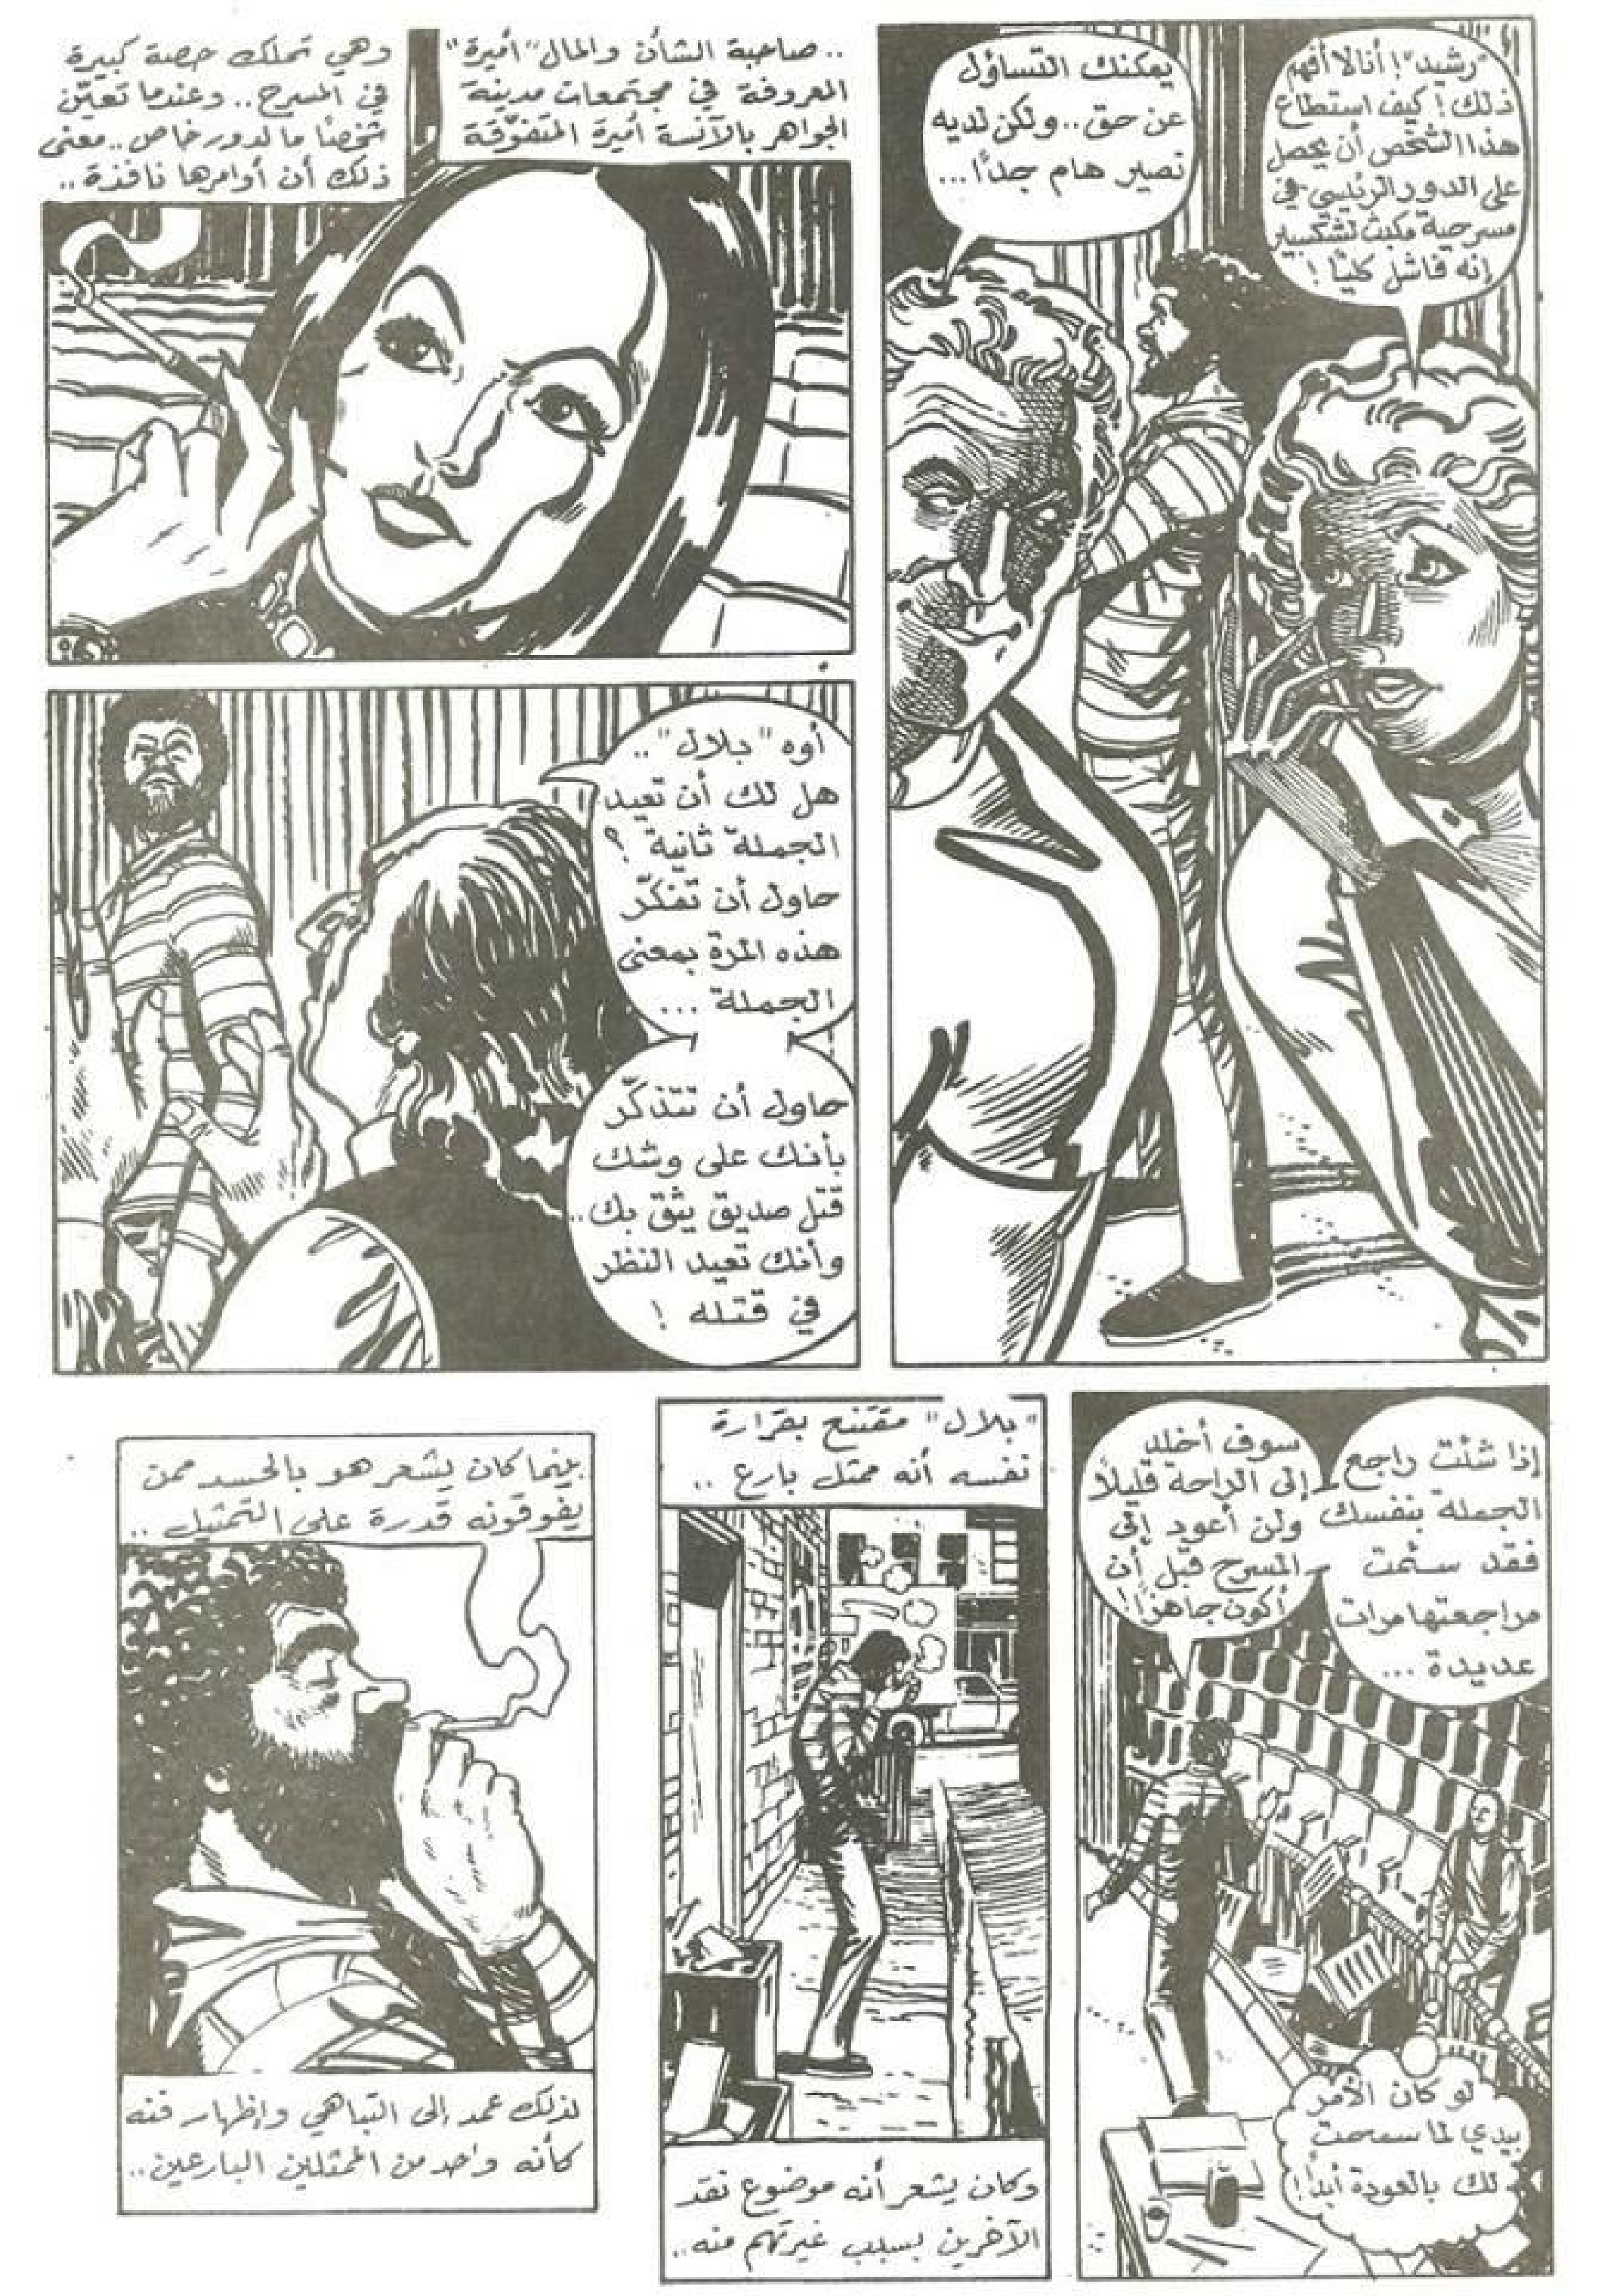 "رشيد"! أنا لا أفهم
ذلك! كيف استطاع
هذا الشخص أن يحصل
على الدور الرئيسي في
مسرحية مكبث لشكسبير
إنه فاشل كليًا!
يمكنك التساؤل
عن حق.. ولكن لديه
نصير هام جدًا...
.. صاحبة الشأن والمال "أميرة"
المعروفة في مجتمعات مدينة
الجواهر بالآنسة أميرة المتفوّقة
وهي تملك حصة كبيرة
في المسرح.. وعندما تعيّن
شخصًا ما لدور خاص.. معنى
ذلك أن أوامرها نافذة..
أوه "بلال"..
هل لك أن تعيد
الجملة ثانية؟
حاول أن تفكّر
هذه المرة بمعنى
الجملة...
حاول أن تتذكّر
بأنك على وشك
قتل صديق يثق بك..
وأنك تعيد النظر
في قتله!
إذا شئت راجع
الجملة بنفسك
فقد سئمت
مراجعتها مرات
عديدة...
سوف أخلد
إلى الراحة قليلاً
ولن أعود إلى
المسرح قبل أن
أكون جاهزًا!
لو كان الأمر
بيدي لما سمحت
لك بالعودة أبدًا!
"بلال" مقتنع بقرارة
نفسه أنه ممثل بارع..
وكان يشعر أنه موضوع نقد
الآخرين بسبب غيرتهم منه..
بينما كان يشعر هو بالحسد ممن
يفوقونه قدرة على التمثيل..
لذلك عمد إلى التباهي وإظهار فنه
كأنه واحد من الممثلين البارعين..